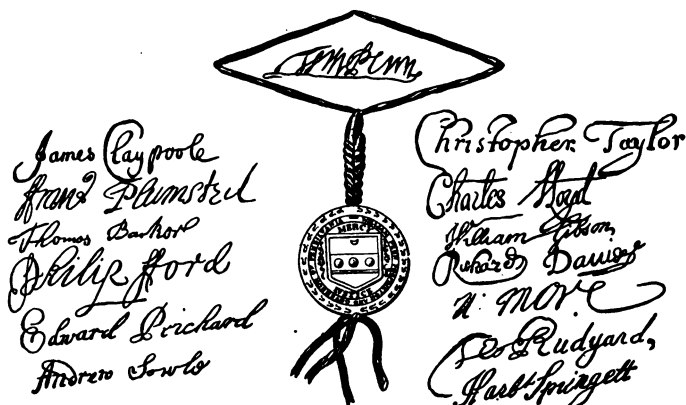 Wm Penn
James Claypoole
Plumsted
Thomas Barker
Philip Fford
Edward Prichard
Andrew Sowle
MERCY
JUSTICE
Christopher Taylor
Charles Lloyd
William Gibson
Richard Davies
N: More
Tho Rudyard,
Harbt Springett